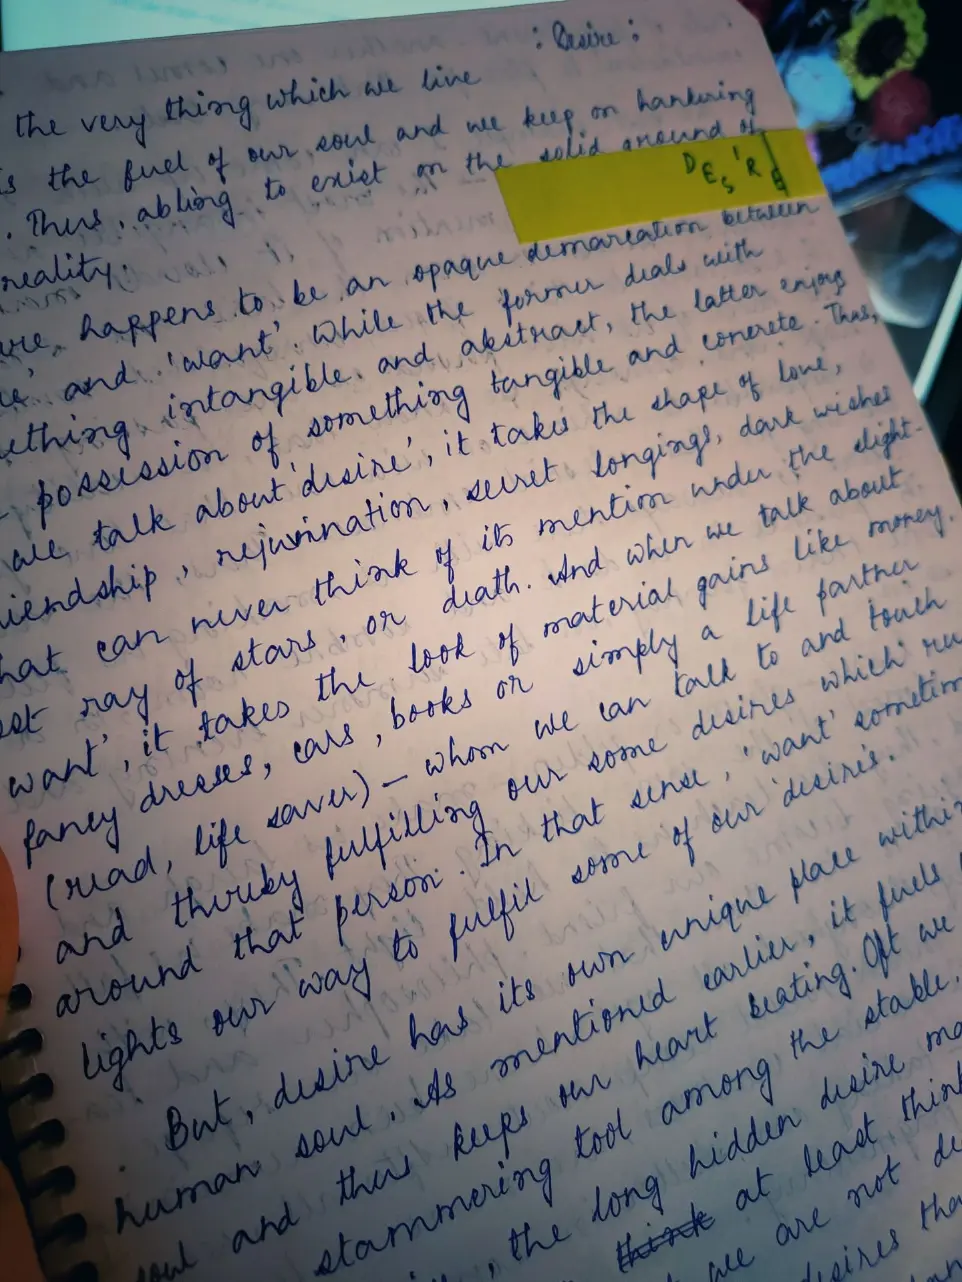 : Desire :
the very thing which we live
is the fuel of our soul and we keep on hankering
. Thus, abling to exist on the solid ground of
DESIR
reality.
happens to be an opaque demarcation between
and 'want'. While the former deals with
intangible and abstract, the latter enjoys
possession of something tangible and concrete. Thus,
we talk about 'desire', it takes the shape of love,
riendship, rejuvination, secret longings, dark wishes
hat can never think of its mention under the slight-
est ray of stars, or death. And when we talk about
want', it takes the look of material gains like money,
fancy dresses, cars, books or simply a life partner
(read, life saver) – whom we can talk to and touch
and thereby fulfilling our some desires which
around that person. In that sense, 'want' sometim
lights our way to fulfil some of our desires.
But, desire has its own unique place within
human soul. As mentioned earlier, it fuels
soul and thus keeps our heart beating. Oft we
stammering tool among the stable.
, the long hidden desire
think at least think
we are not
desires tha